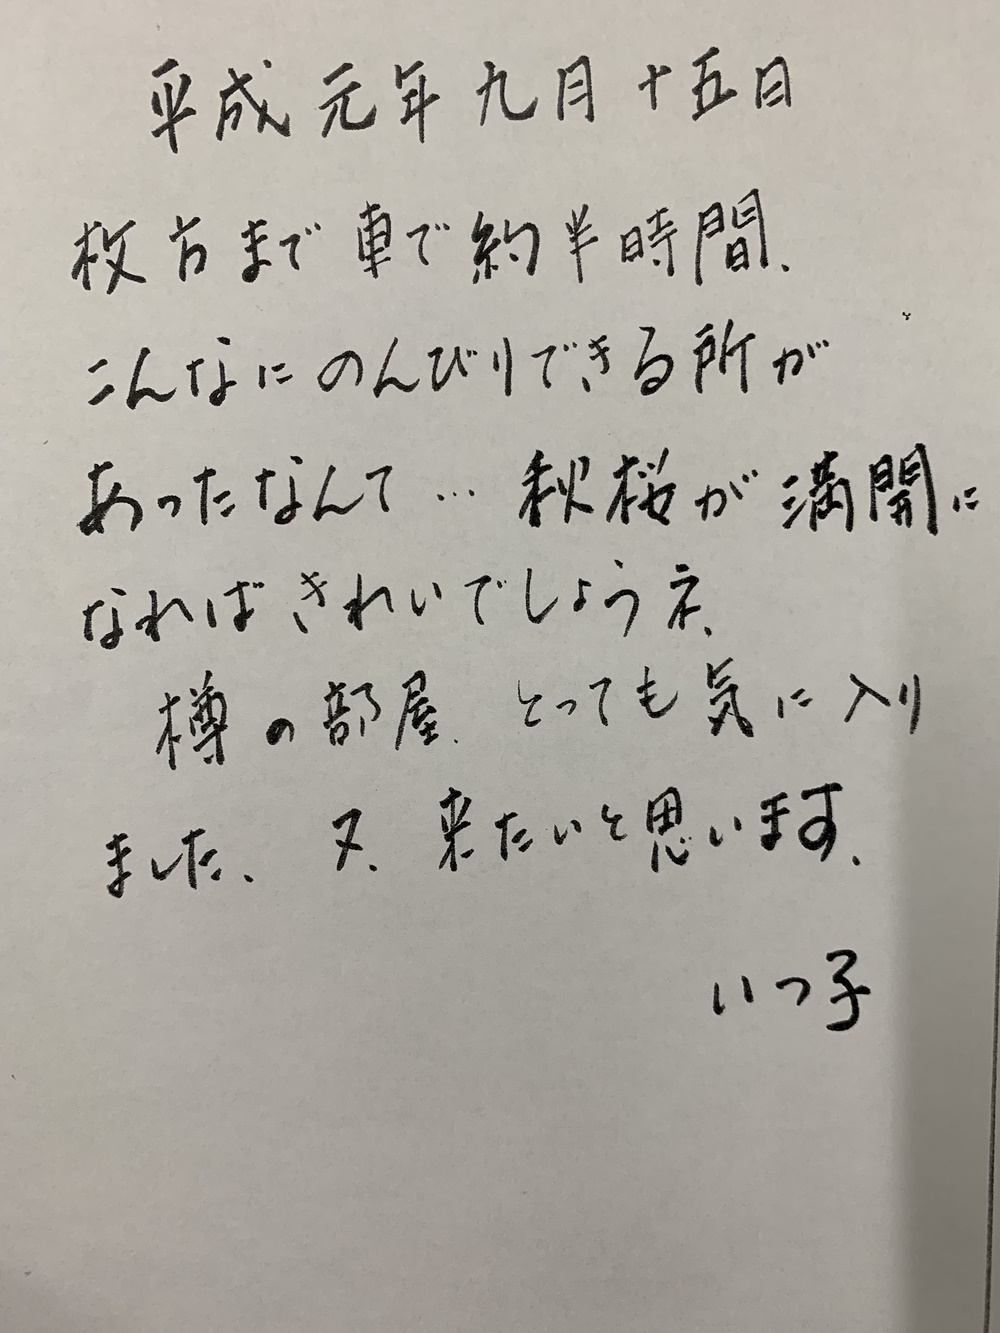 平成元年九月十五日
枚方まで車で約半時間、
こんなにのんびりできる所が
あったなんて…秋桜が満開に
なればきれいでしょうネ、
樽の部屋、とっても気に入り
ました、又、来たいと思います、
いつ子